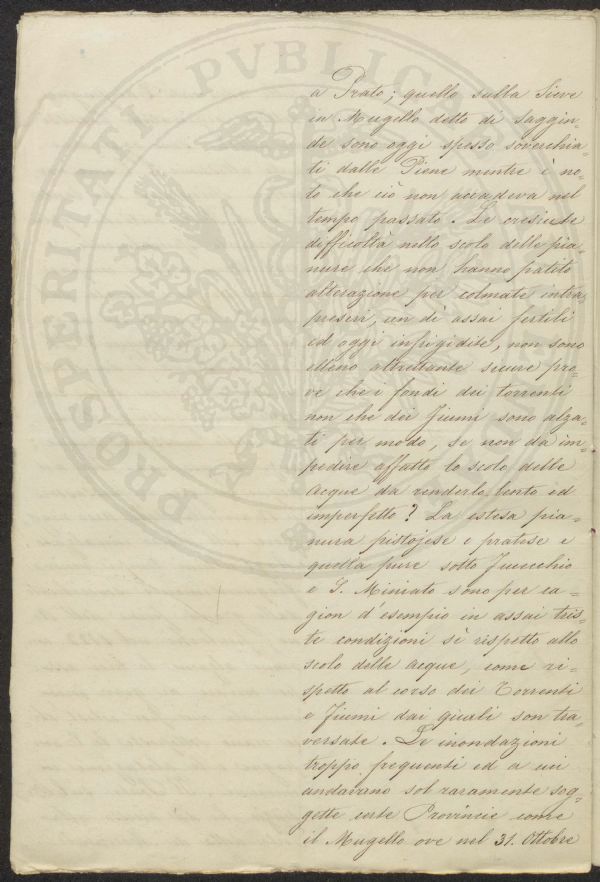 a Prato; quello sulla Sieve
in Mugello detto di Saggin=
de sono oggi spesso soverchia=
ti dalle Piene mentre è no=
to che ciò non accadeva nel
tempo passato. Le cresciute
difficoltà nello scolo delle pia=
nure che non hanno patito
alterazione per colmate intra
presevi, un dì assai fertili
ed oggi infrigidite, non sono
elleno altrettante sicure pro=
ve che i fondi dei torrenti
non che dei Fiumi sono alza=
ti per modo, se non da im=
pedire affatto lo scolo delle
acque da renderlo lento ed
imperfetto? La estesa pia=
nura pistojese e pratese e
quella pure sotto Fucecchio
e S. Miniato sono per ca=
gion d'esempio in assai tris=
te condizioni sì rispetto allo
scolo delle acque, come ri=
spetto al corso dei Torrenti
e Fiumi dai quali son tra=
versate. Le inondazioni
troppo frequenti ed a cui
andavano sol raramente sog=
gette certe Provincie come
il Mugello ove nel 31. Ottobre
PROSPERITATI PVBLICAE